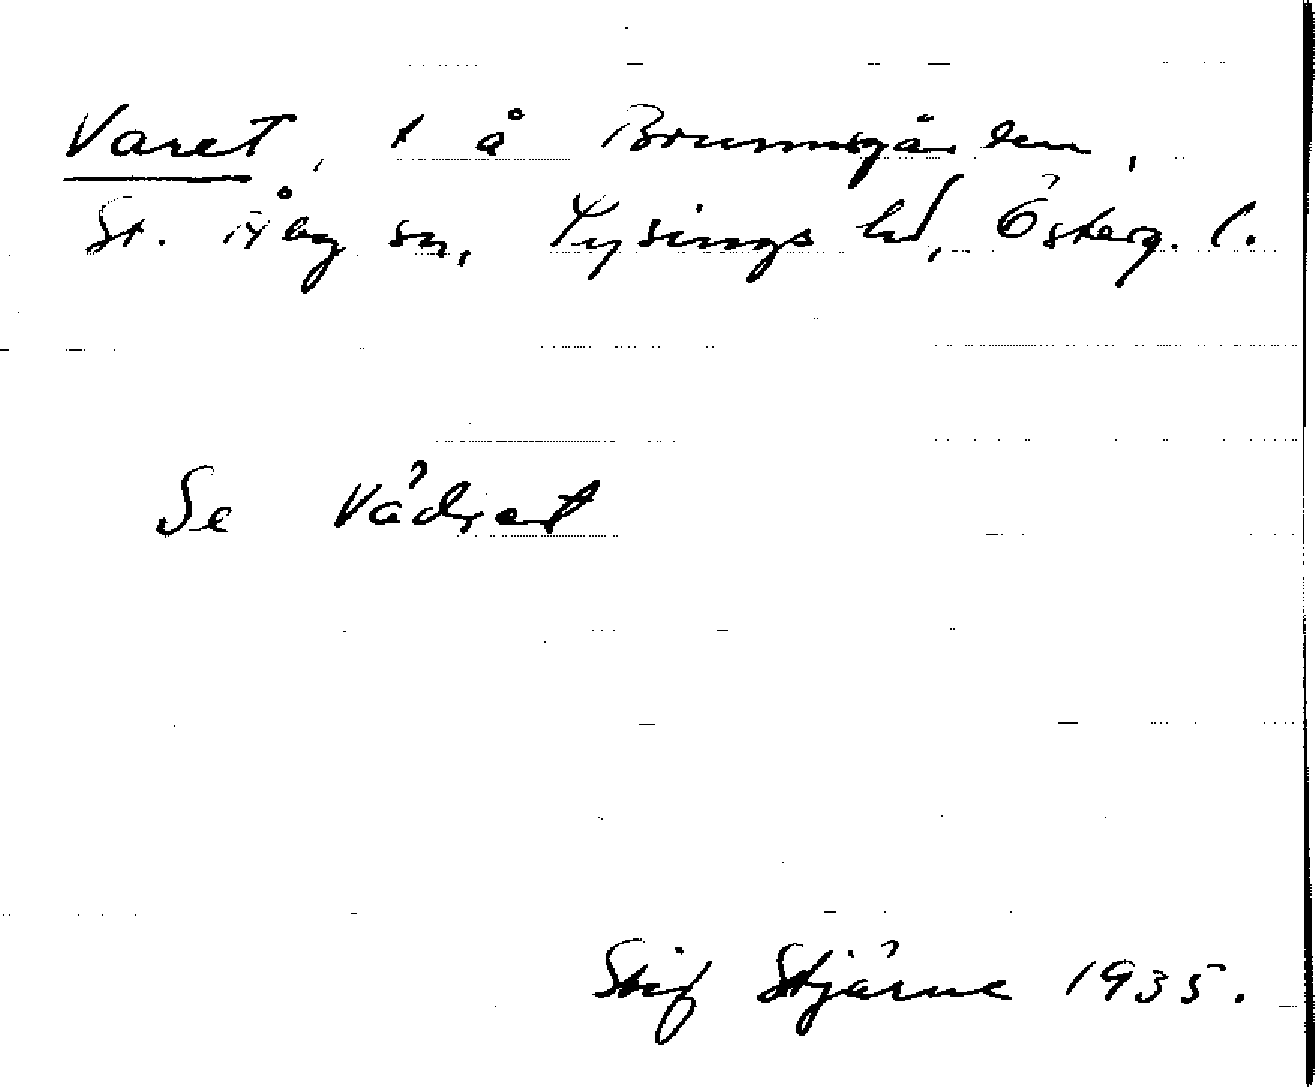 Varet, t å Brunnsgården,
St. Åby sn, Lysings hd, Österg. l.
Se Vädret
Stig Stjärne 1935.